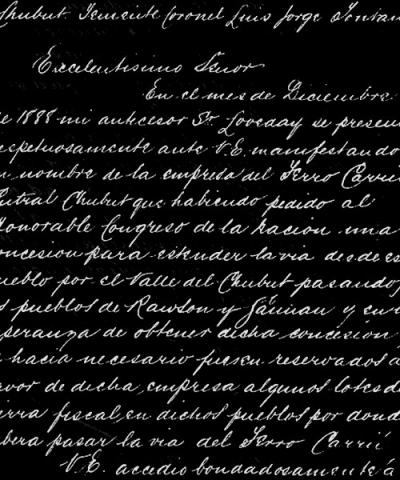 Chubut. Teniente Coronel Luis Jorge Fontan
Excelentisimo Señor
En el mes de Diciembre
de 1888 mi antecesor Sr Loveday se presen
espetuosamente ante V.E. manifestando
n nombre de la empresa del Ferro Carri
entral Chubut que habiendo pedido al
Honorable Congreso de la nacion una
oncesion para estender la via desde es
ueblo por el Valle del Chubut pasando
s pueblos de Rawson y Gaiman y en
speranza de obtener dicha concesion
e hacia necesario fuesen reservados a
avor de dicha empresa algunos lotes d
ierra fiscal, en dichos pueblos por dond
bera pasar la via del Ferro Carril
V.E. accedio bondadosamente á